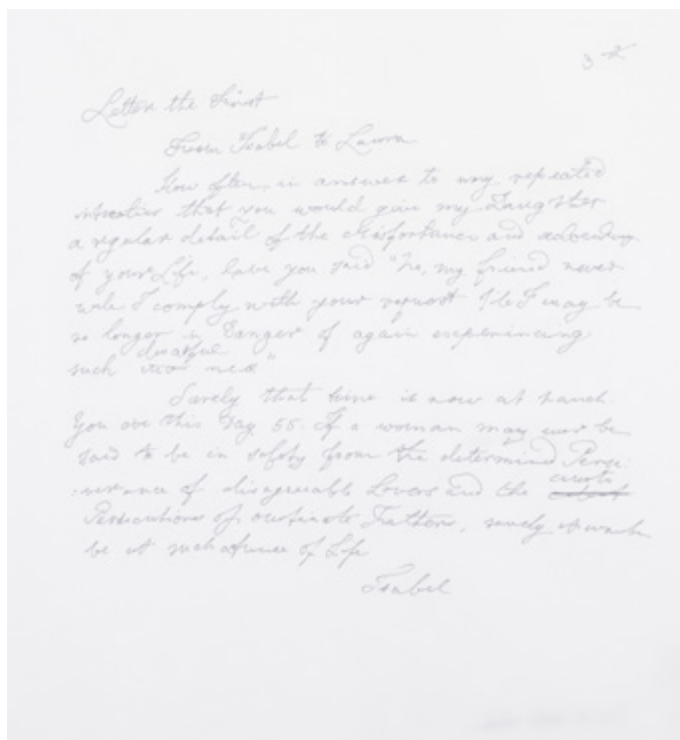 3
Letter the First
From Isabel to Laura
How often, in answer to my repeated
intreaties that you would give my Daughter
a regular detail of the Misfortunes and
of your Life, have you said "No, my friend never
will I comply with your request till I may be
no longer in Danger of again experiencing
dreadful
such ones"
Surely that time is now at hand.
You are this Day 55. If a woman may ever be
said to be in safety from the determined Perse:
:verance of disagreeable Lovers and the
cruel
Persecutions of obstinate Fathers, surely it must
be at such a time of Life
Isabel